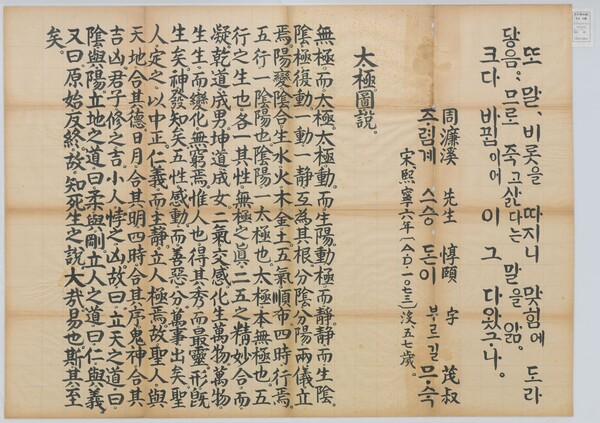 또 말, 비롯을 따지니 맞힘에 도라
닿음, 므로 죽고 삶다는 말을 앎.
크다 바꿈이여 이 그 다왔구나.
周濂溪 先生 惇頤 字 茂叔
주렴계 스승 돈이 부르길 므슉
宋 熙寧六年(A.D.一〇七三) 五七歲.
太極圖說。
無極而太極。太極動而生陽。動極而靜。靜而生陰。
陰極復動。一動一靜。互爲其根。分陰分陽。兩儀立
焉。陽變陰合。生水火木金土。五氣順布。四時行焉。
五行一陰陽也。陰陽一太極也。太極本無極也。五
行之生也。各一其性。無極之眞。二五之精。妙合而
凝。乾道成男。坤道成女。二氣交感。化生萬物。萬物
生生。而變化無窮焉。惟人也。得其秀而最靈。形旣
生矣。神發知矣。五性感動。而善惡分。萬事出矣。聖
人定之。以中正仁義。而主靜。立人極焉。故聖人與
天地合其德。日月合其明。四時合其序。鬼神合其
吉凶。君子修之吉。小人悖之凶。故曰立天之道。曰
陰與陽。立地之道。曰柔與剛。立人之道。曰仁與義。
又曰。原始反終。故知死生之說。大哉易也。斯其至
矣。